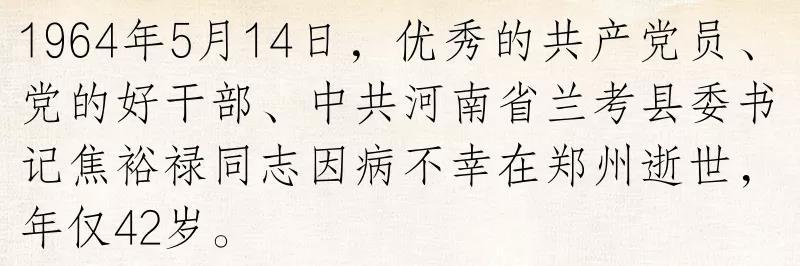 1964年5月14日，优秀的共产党员、
党的好干部、中共河南省兰考县委书
记焦裕禄同志因病不幸在郑州逝世，
年仅42岁。